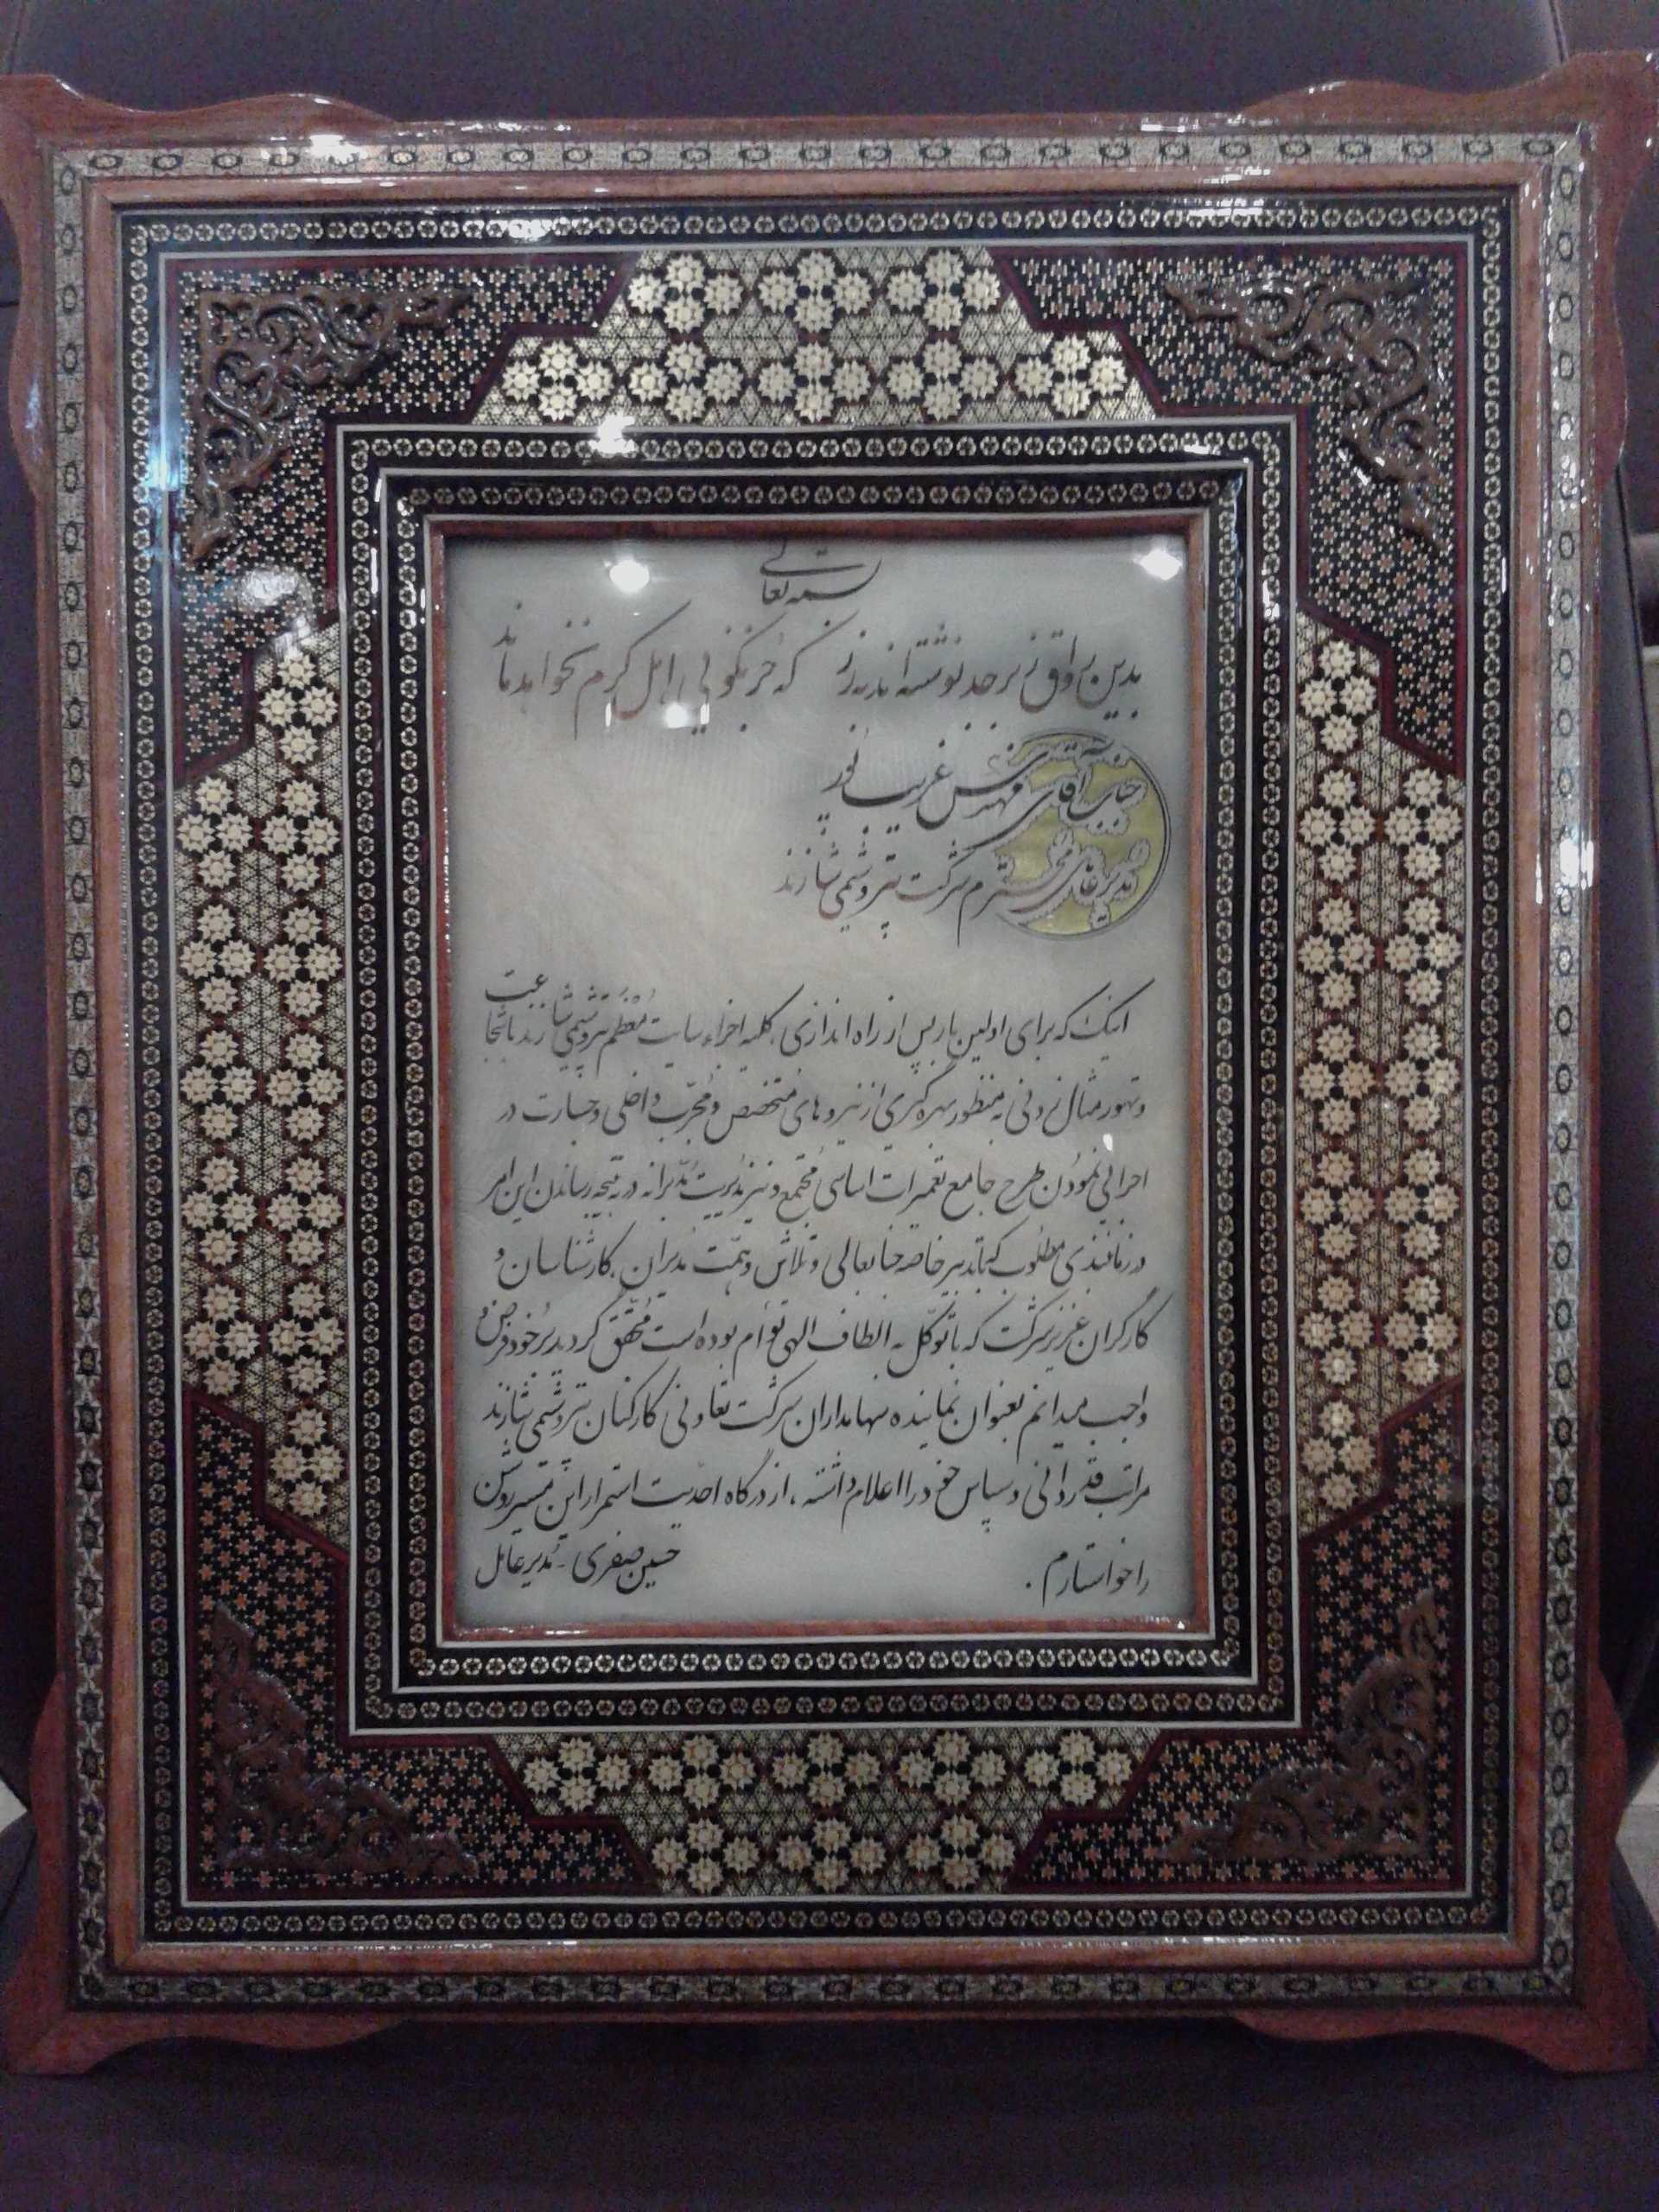 بسمه تعالی
بدین رواق زبرجد نوشته اند بزر که جز نکویی اهل کرم نخواهد ماند
جناب آقای مهندس غریب پور
مدیر عامل محترم شرکت پتروشیمی شازند
اینک که برای اولین بار پس از راه اندازی کلیه اجزاء سایت معظم پتروشیمی شازند با شجاعت
و تهور مثال زدنی به منظور بهره گیری از نیروهای متخصص و مجرب داخلی و جسارت در
اجرایی نمودن طرح جامع تعمیرات اساسی مجتمع و نیز مدیریت مدبرانه در به نتیجه رساندن این امر
در زمانبندی مطلوب که با تدبیر خاصه جنابعالی و تلاش و همت مدیران، کارشناسان و
کارگران عزیز شرکت که با توکل به الطاف الهی توأم بوده است محقق گردید بر خود فرض و
واجب میدانم بعنوان نماینده سهامداران شرکت تعاونی کارکنان پتروشیمی شازند
مراتب قدردانی و سپاس خود را اعلام داشته، از درگاه احدیت استمرار این مسیر روشن
را خواستارم.
حسین صفری - مدیر عامل